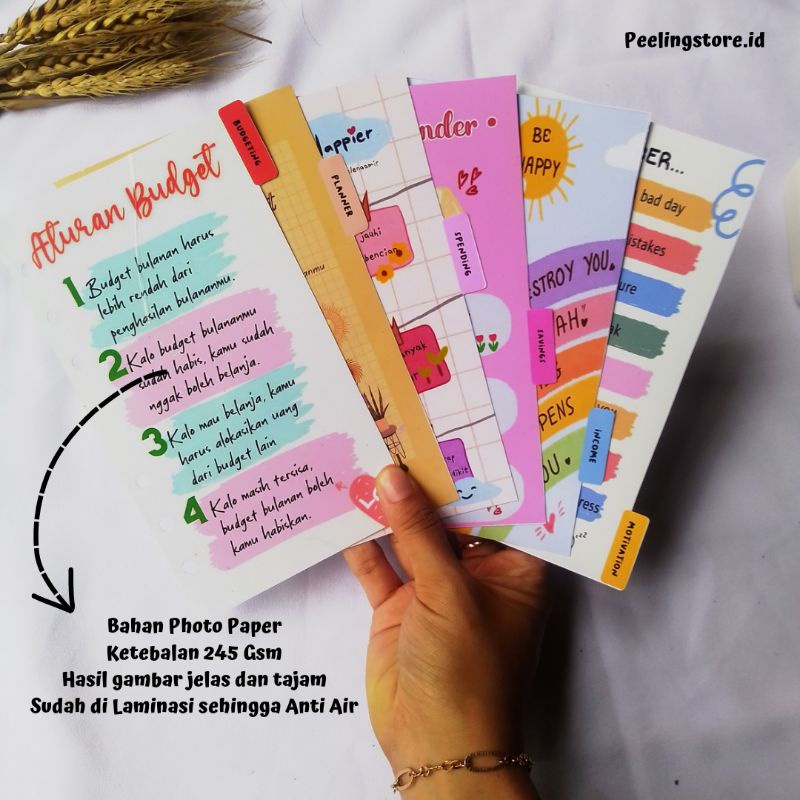 Peelingstore.id
BUDGETING
Aturan Budget
1 Budget bulanan harus
lebih rendah dari
penghasilan bulananmu.
2 Kalo budget bulananmu
sudah habis, kamu sudah
nggak boleh belanja.
3 Kalo mau belanja, kamu
harus alokasikan uang
dari budget lain
4 Kalo masih tersisa,
budget bulanan boleh
kamu habiskan.
PLANNER
appier
jauhi
bencian
anyak
SPENDING
nder
SAVINGS
BE
HAPPY
STROY YOU.
AH
PENS
OU.
INCOME
ER...
bad day
istakes
ure
ak
ress
MOTIVATION
Bahan Photo Paper
Ketebalan 245 Gsm
Hasil gambar jelas dan tajam
Sudah di Laminasi sehingga Anti Air